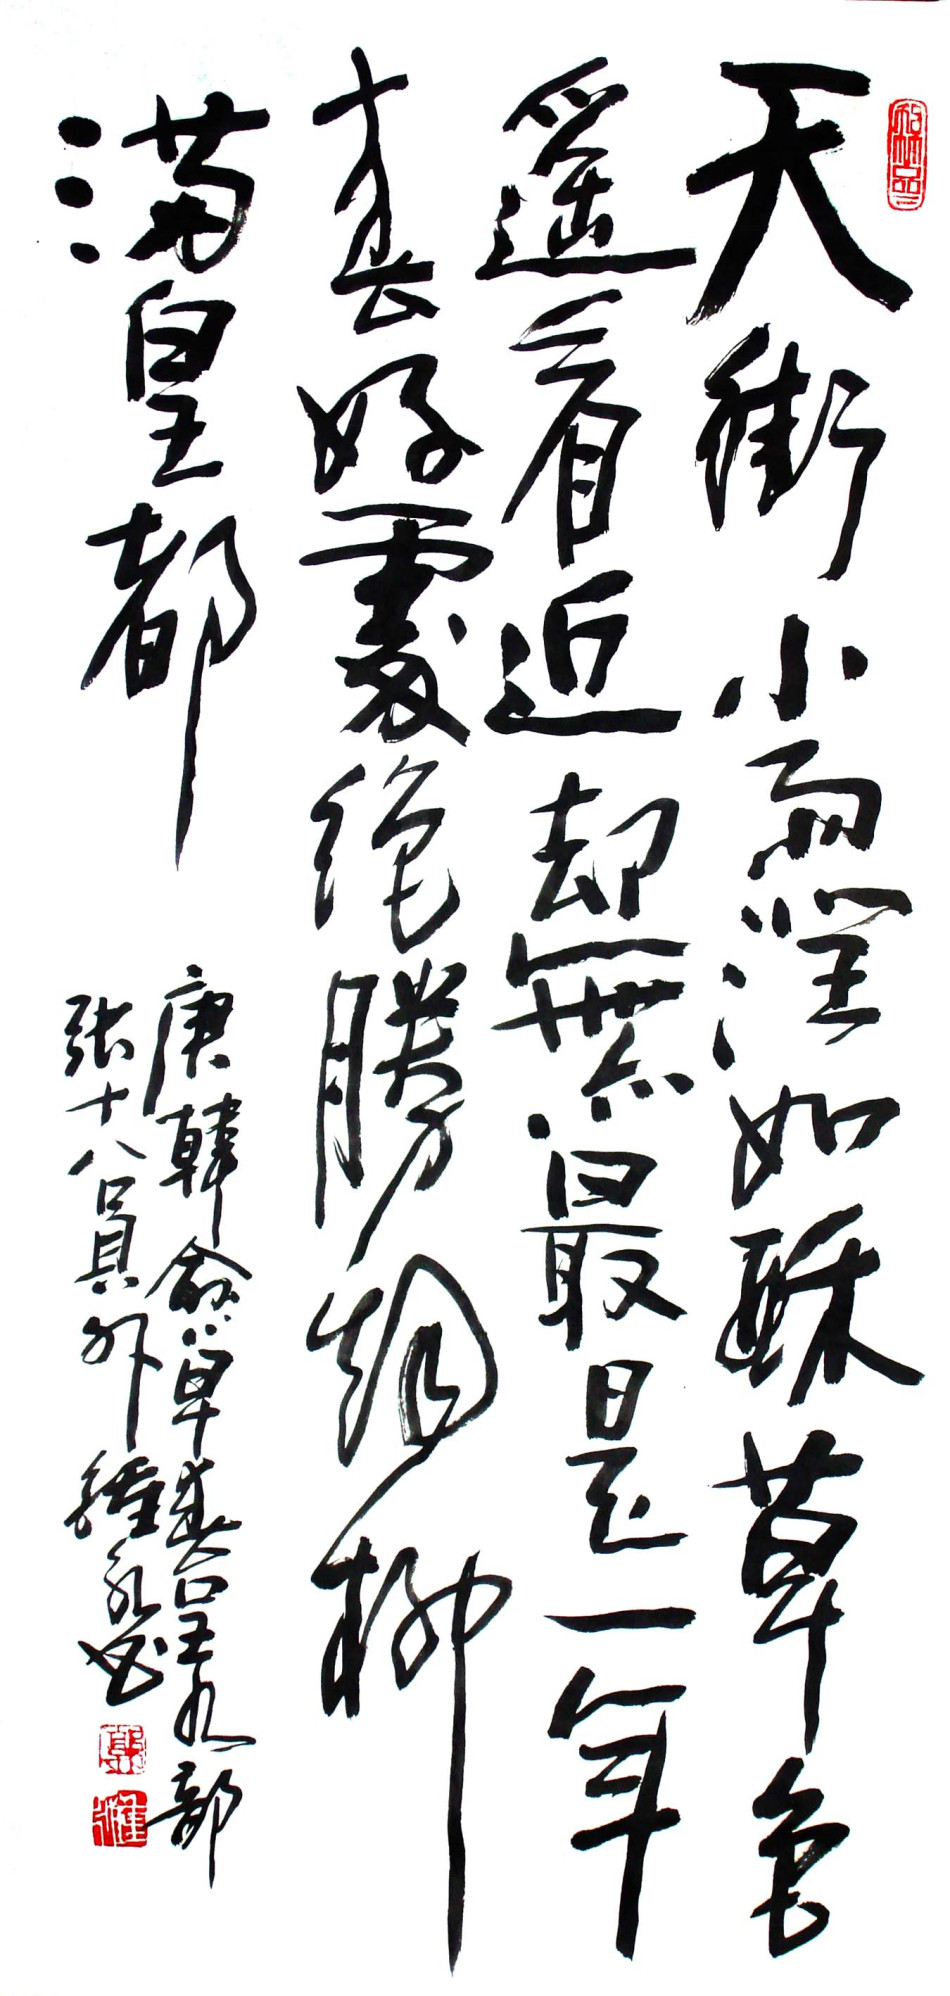 天街小雨潤如酥草色
遥看近却無最是一年
春好處絕勝烟柳
滿皇都
唐韓愈早春呈水部
張十八員外